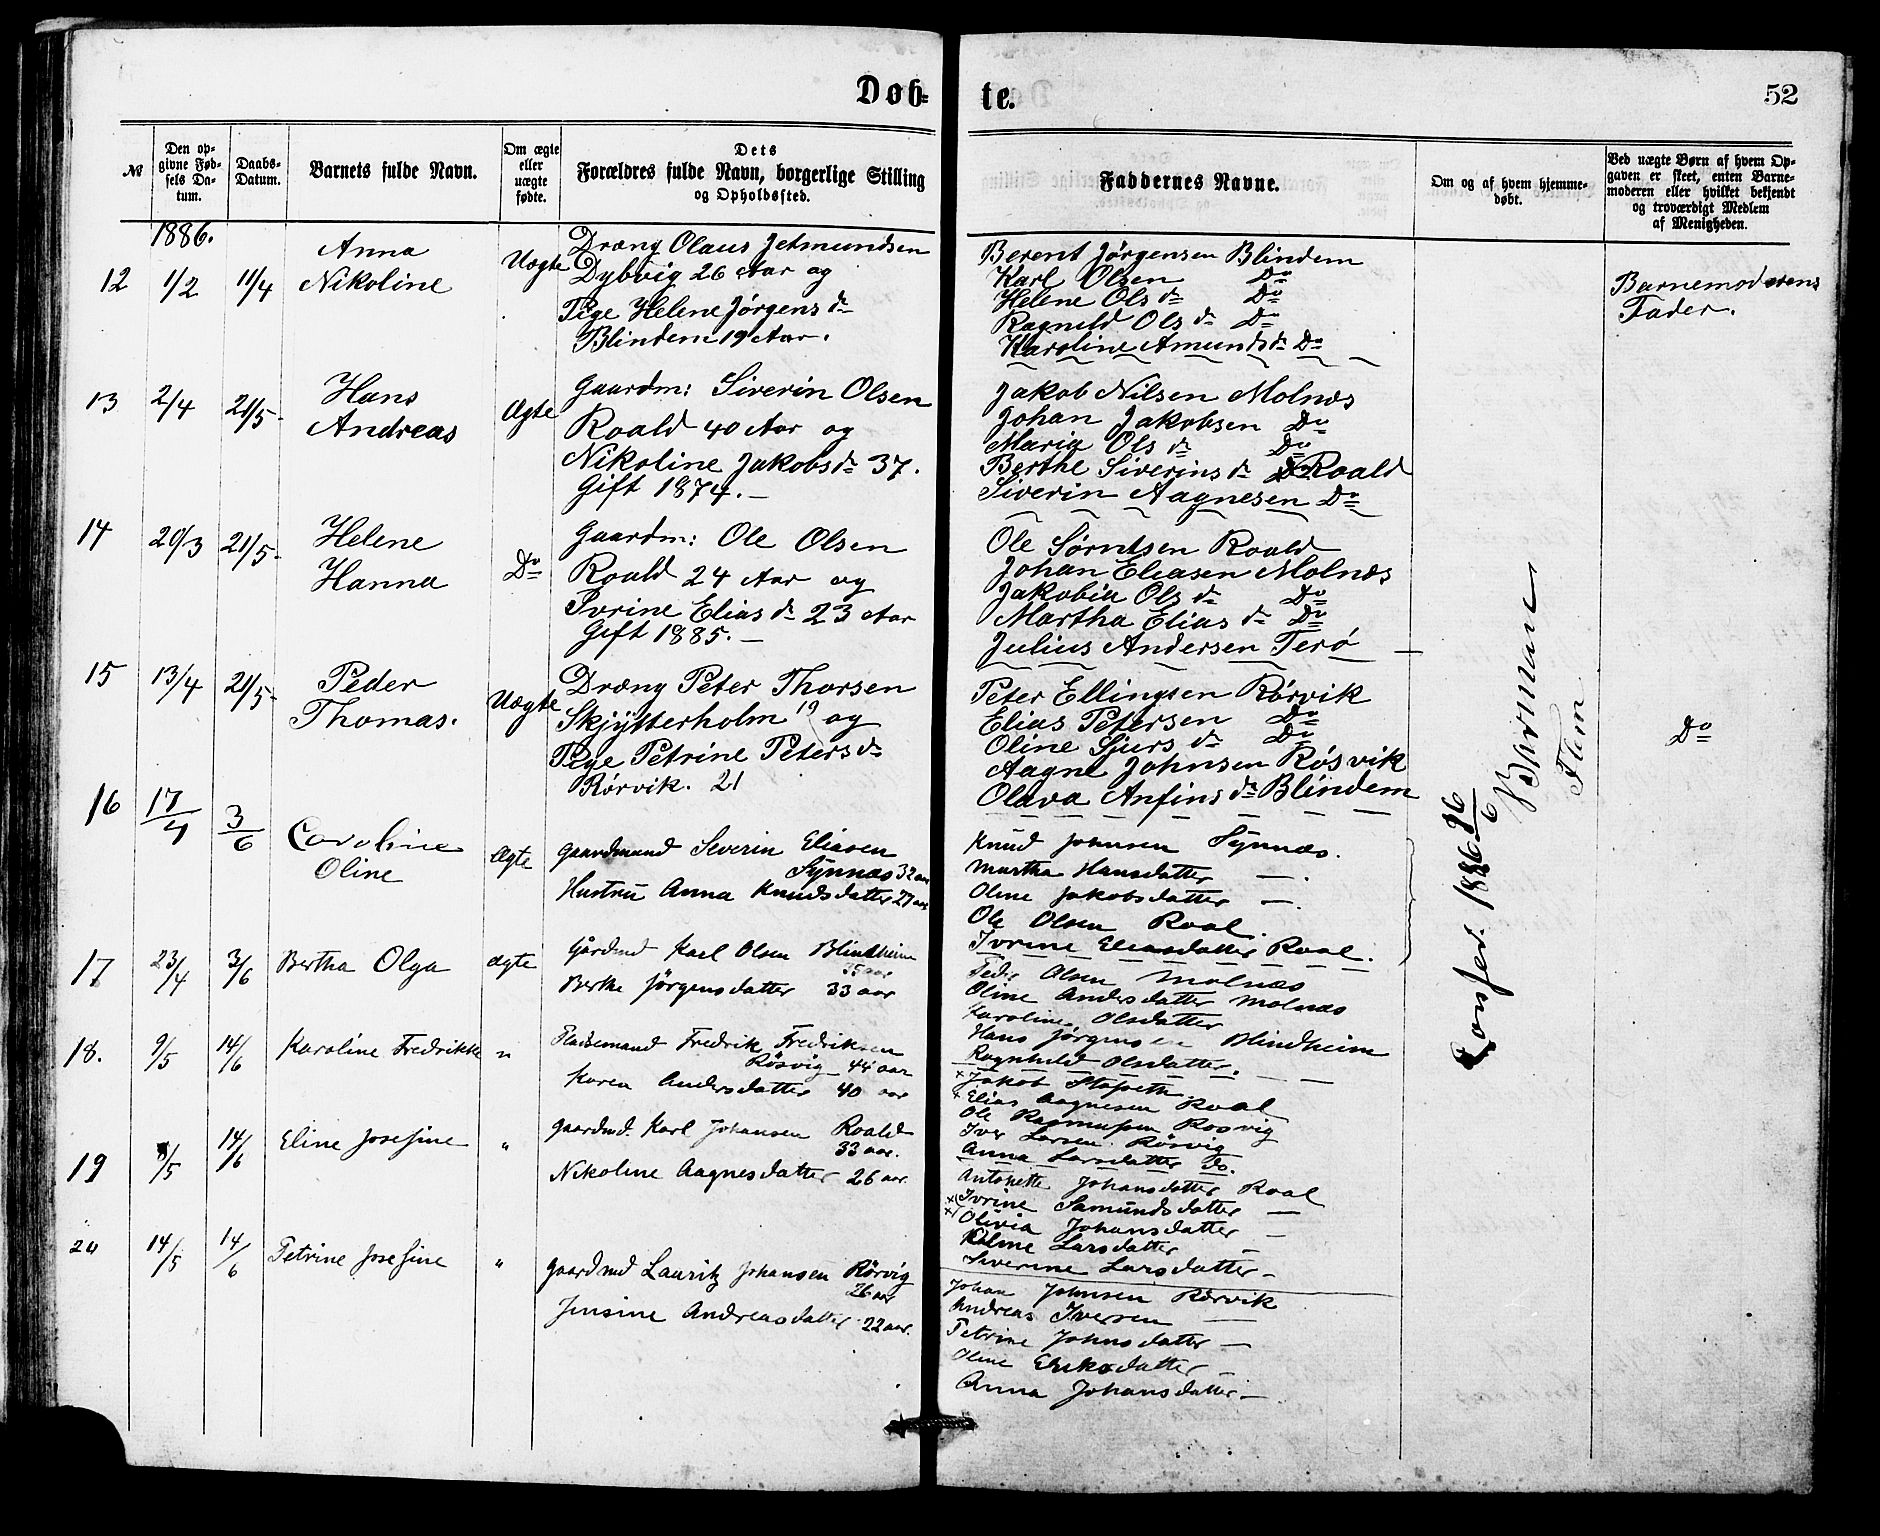 Døb-
te.
52
№
Den op-
givne Fød-
sels Da-
tum.
Daabs-
Datum.
Barnets fulde Navn.
Om ægte
eller
uægte
fødte.
Dets
Forældres fulde Navn, borgerlige Stilling
og Opholdssted.
Faddernes Navne.
Om og af hvem hjemme-
døbt.
Ved uægte Børn af hvem Op-
gaven er skeet, enten Barne-
moderen eller hvilket bekjendt
og troværdigt Medlem
af Menigheden.
1886.
12
1/2
11/4
Anna
Nikoline
Uægte
Dræng Olaus Jetmundsen
Dybvig 26 Aar og
Pige Helene Jørgens dr
Blindem 19 Aar.
Berent Jørgensen Blindem
Karl Olsen Do
Helene Ols dr Do
Ragnild Ols dr Do
Karoline Amunds dr Do
Barnemoderens
Fader.
13
2/4
21/5
Hans
Andreas
Ægte
Gaardm: Siverin Olsen
Roald 40 Aar og
Nikoline Jakobs dr 37.
Gift 1874. —
Jakob Nilsen Molnæs
Johan Jakobsen Do
Maria Ols dr Do
Berthe Siverins dr Roald
Siverin Aagnesen Do
14
20/3
21/5
Helene
Hanna
Do
Gaardm: Ole Olsen
Roald 24 Aar og
Ivrine Elias dr 23 Aar
Gift 1885. —
Ole Sørntsen Roald
Johan Eliasen Molnæs
Jakobia Ols dr Do
Martha Elias dr Do
Julius Andersen Terø
15
13/4
21/5
Peder
Thomas.
Uægte
Dræng Peter Thorsen
Skjytterholm 19 og
Pige Petrine Peters dr
Rørvik. 21
Peter Ellingsen Rørvik
Elias Petersen Do
Oline Sjurs dr Do
Aagne Johnsen Røsvik
Olava Anfins dr Blindem
Do
16
17/4
3/6
Caroline
Oline
Ægte
Gaardmand Severin Eliasen
Synnæs 32 aar
Hustru Anna Knudsdatter 27 aar
Knud Johnsen Synnæs.
Martha Hansdatter —.
Oline Jakobsdatter —.
Ole Olsen Roal.
Ivrine Eliasdatter Roal.
17
23/4
3/6
Bertha Olga
ægte
Gårdmd Karl Olsen Blindheim
35 aar
Berthe Jørgensdatter 33 aar
Peder Olsen Molnæs
Oline Andersdatter Molnæs
Karoline Olsdatter
Hans Jørgensen Blindheim
Ragnhild Olsdatter.
18.
9/5
14/6
Karoline Fredrikke
"
Pladsemand Fredrik Fredriksen
Røsvig 44 aar
Karen Andersdatter 40 aar
Jakob Stafseth
Elias Aagnesen Roal
Ole Rasmussen Rosvig
Iver Larsen Røsvig
Anna Larsdatter do.
19
8/5
14/6
Eline Josefine
"
Gaardmd. Karl Johansen Roald
33 aar.
Nikoline Aagnesdatter 26 aar
Antonette Johansdatter Roal
Ivrine Samundsdatter —
Olivia Johansdatter —
Larsdatter —
Siverine Larsdatter —
20
14/5
14/6
Petrine Josefine
"
Gaardmd Lauritz Johansen Rørvig
26 aar
Jensine Andreasdatter 22 aar.
Johan Johnsen Rørvik
Andreas Iversen —
Petrine Johnsdatter —
Oline Eriksdatter —
Anna Johansdatter —
1886 26/6